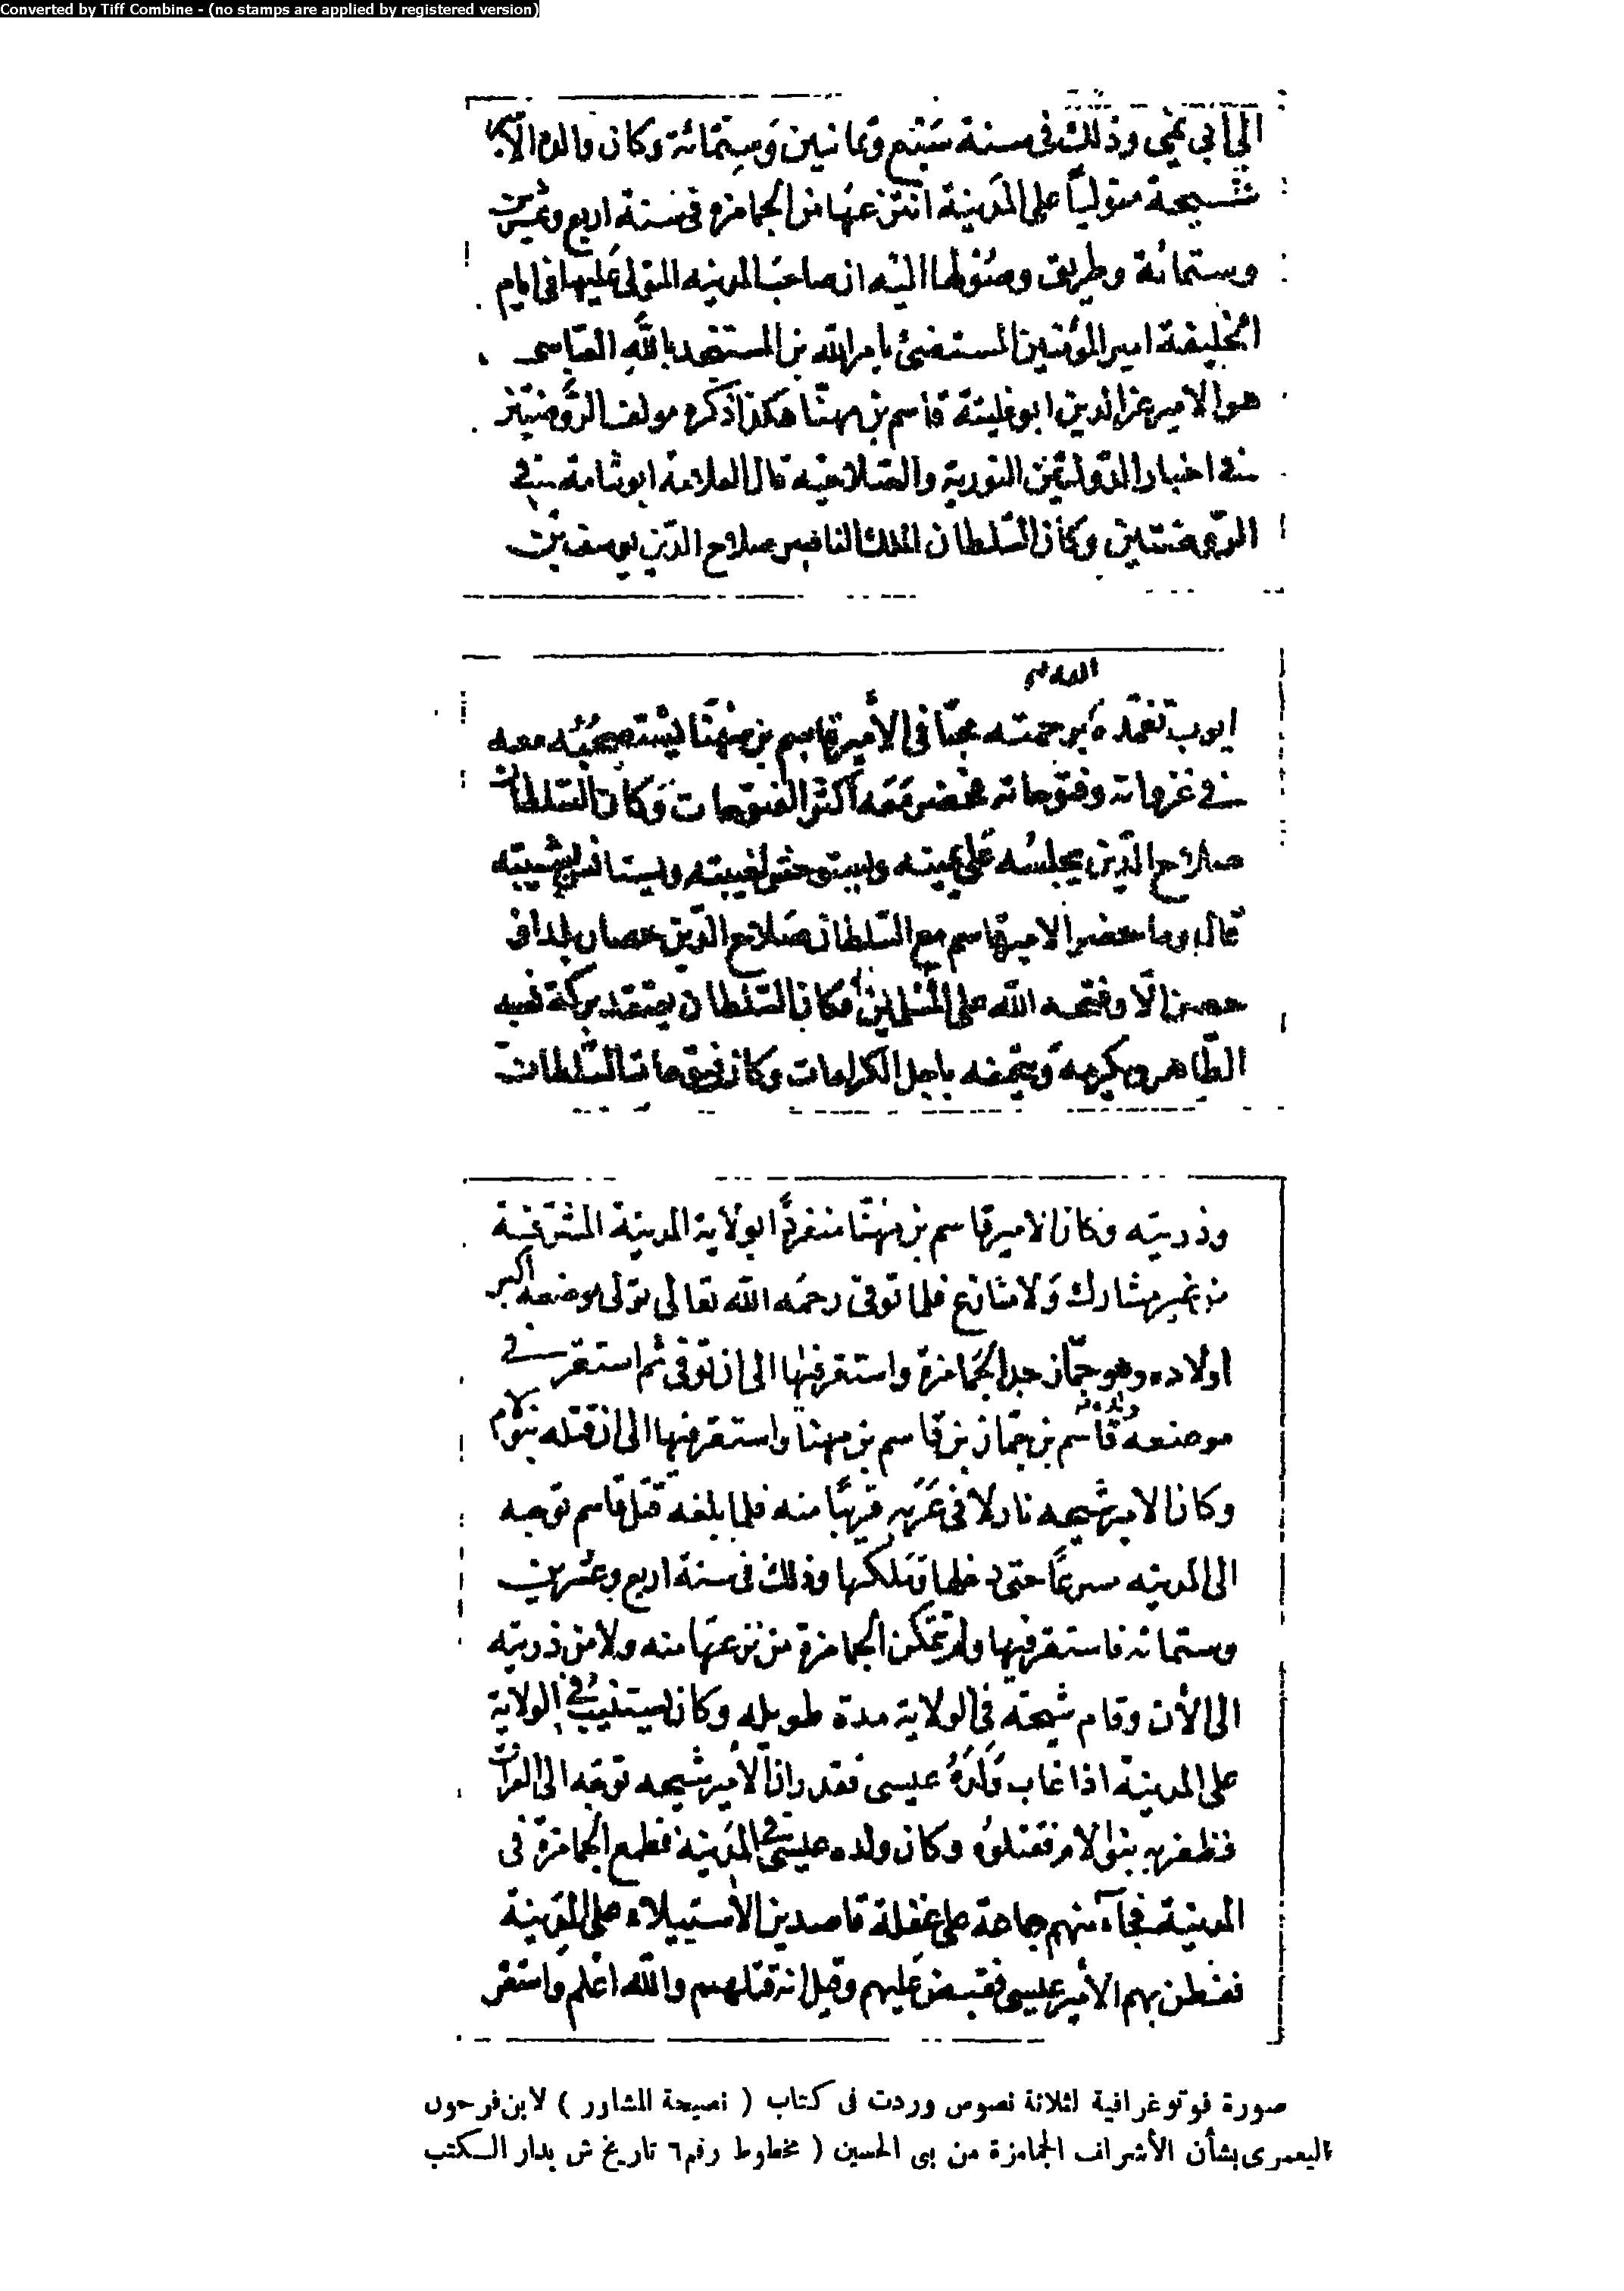 Converted by Tiff Combine - (no stamps are applied by registered version)
الى ابي نمي وذلك في سنة سبع وثمانين وستمائة وكان والده الأمير
شيحة متوليًا على المدينة انتزعها من الجمامزه في سنة اربع وعشرين
وستمائة وطريق وصولها اليه ان صاحب المدينه المتولى عليها في ايام
الخليفة امير المؤمنين المستضئ بامر الله بن المستنجد بالله العباسى
هو الامير عز الدين ابو فليتة قاسم بن مهنّا هكذا ذكره مولف الروضتين
في اخبار الدولتين النورية والصلاحيه قال العلامة ابو شامة في
الروضتين وكان السّلطان الملك الناصر صلاح الدّين يوسف بن
الله
ايوب تغمده برحمته محبّا في الأمير قاسم بن مهنّا يستصحبه معه
في غزواته وفتوحاته فحضر معه اكثر الفتوحات وكان السّلطان
صلاح الدّين يجلسه على يمينه ويستوحش لغيبته ويستانس بشيبته
قال وما حضر الامير قاسم مع السّلطان صلاح الدّين حصار بلد او
حصن الّا وفتحه الله على المسلمين فكان السّلطان يعتقد بركة نسبه
الطّاهر ويكرمه ويتحفه باجل الكرامات وكان فتوحات السّلطان
وذريته وكان الامير قاسم بن مهنّا منفردًا بولاية المدينة الشريفة
من غير مشارك ولا منازع فلما توفى رحمه الله تعالى تولى موضعه اكبر
اولاده وهو جمّاز جد الجمامزة واستقر فيها الى ان توفى ثم استقر في
ولده
موضعه قاسم بن جمّاز بن قاسم بن مهنا واستقر فيها الى ان قتله بنو لام
وكان الامير شيحه نازلا في عربه قريبًا منه فلما بلغه قتل قاسم توجه
الى المدينه مسرعًا حتى دخلها وملكها وذلك في سنة اربع وعشرين
وستمائه فاستقر فيها ولم يتمكن الجمامزة من نزعها منه ولا من ذريته
الى الأن وقام شيحه في الولاية مدة طويله وكان يستنيب في الولاية
على المدينة اذا غاب ولده عيسى فقدر ان الأمير شيحه توجه الى العراق
فظفر به بنو لام فقتلوه وكان ولده عيسى في المدينة فطمع الجمامزة في
المدينة فجآء منهم جماعة على غفلة قاصدين الاستيلاء على المدينة
ففطن بهم الأمير عيسى فقبض عليهم وقيل انه قتلهم والله اعلم واستقر
صورة فوتوغرافية لثلاثة نصوص وردت فى كتاب ( نصيحة المشاور ) لابن فرحون
اليعمرى بشأن الأشراف الجمامزة من بى الحسين ( مخطوط رقم ٦ تاريخ ش بدار الـكتب